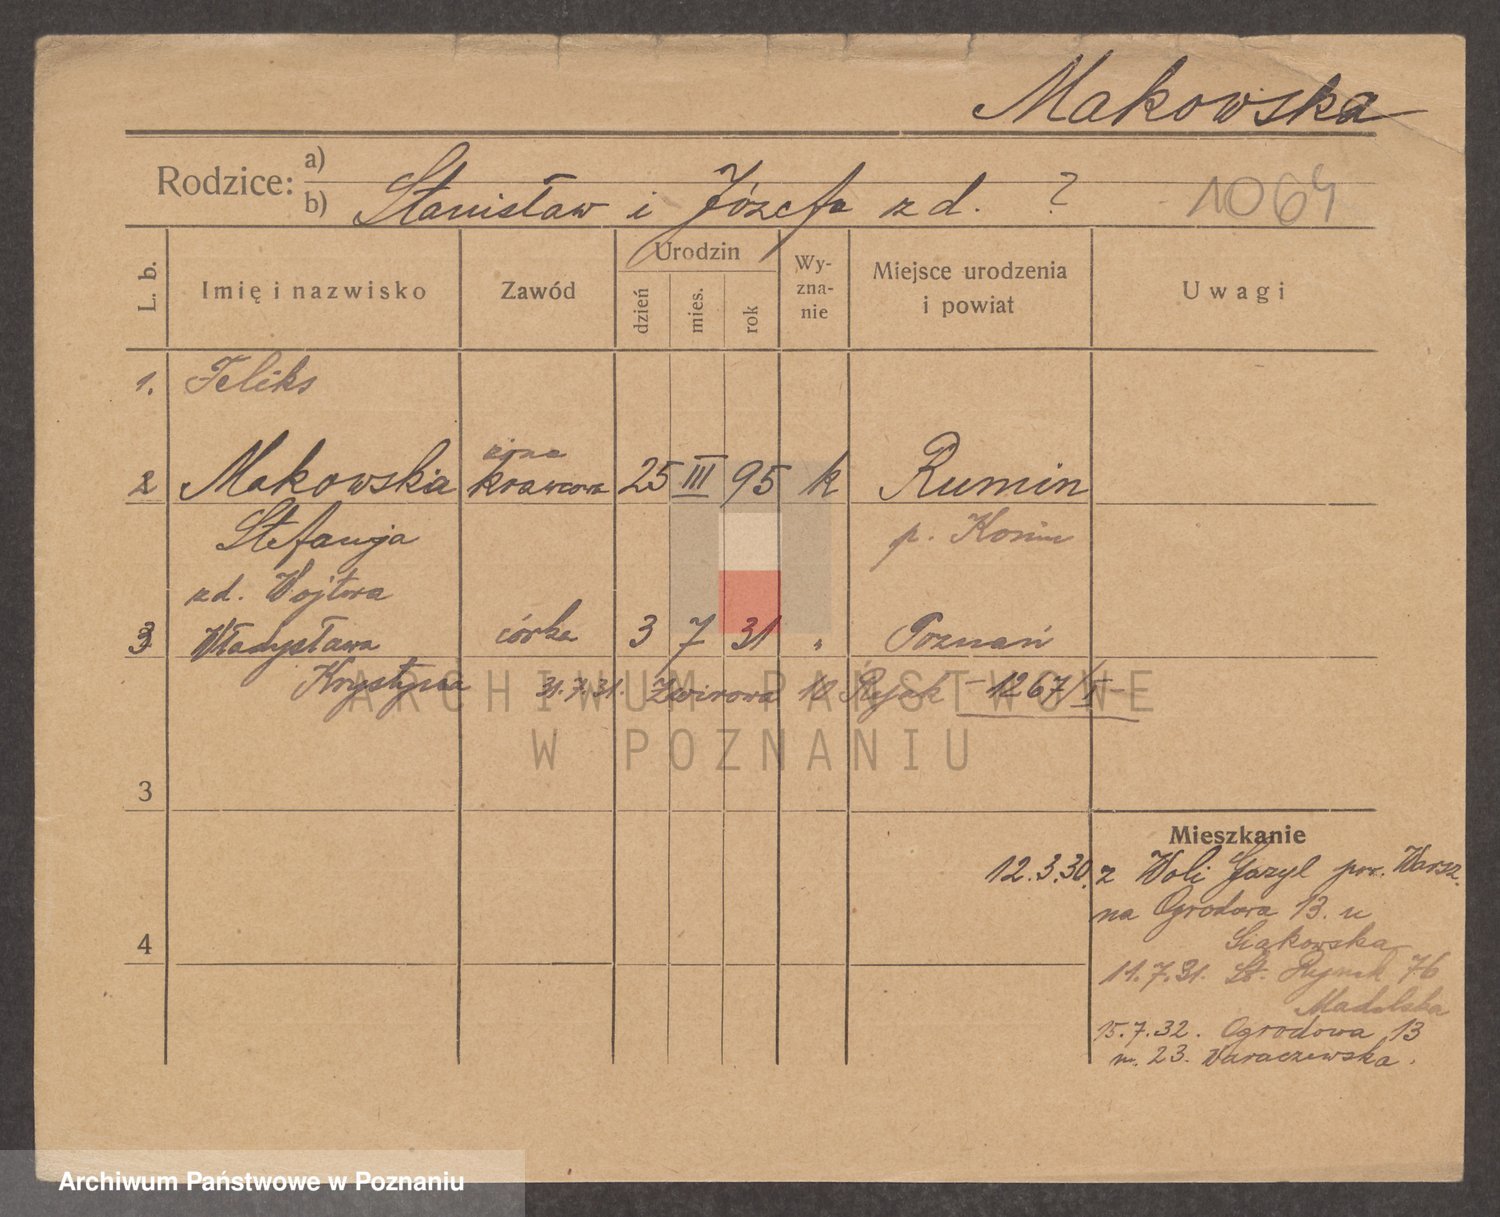 Makowska
Rodzice: a)
b) Stanisław i Józefa zd. ?
1064
L. b.
Imię i nazwisko
Zawód
Urodzin
dzień
mies.
rok
Wy-
zna-
nie
Miejsce urodzenia
i powiat
Uwagi
1. Feliks
żona
2 Makowska krawcowa 25 III 95 k Rumin
Stefanja p. Konin
zd. Wojtera
3 Władysława córka 3 7 31 " Poznań
Krystyna 31.7.31. Żwirowa 10 - 1267/II -
ARCHIWUM PAŃSTWOWE
W POZNANIU
3
Mieszkanie
12.3.30. z Woli pow. Warsz.
na Ogrodowa 13. u
Siąkowska
4
11.7.31. St. Rynek 76
15.7.32. Ogrodowa 13
m. 23.
Archiwum Państwowe w Poznaniu